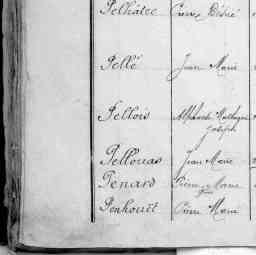 Pelhâtre Pierre Désiré
Pellé Jean Marie
Pellois Alphonse Mathurin
Joseph
Pellouas Jean Marie
Penard Pierre Marie
Penhouët Pierre Marie